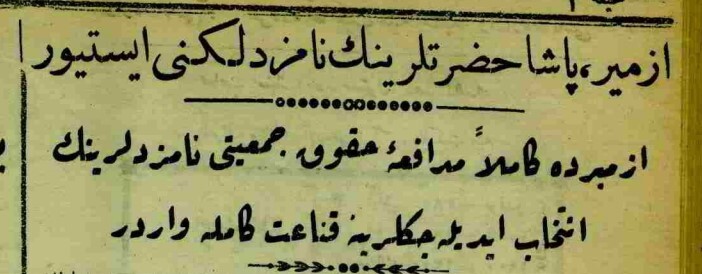 ازمير، پاشا حضرتلرينك نامزدلكنى ايستيور
ازميرده كاملاً مدافعۀ حقوق جمعيتى نامزدلرينك
انتخاب ايديله‌جكلرينه قناعت كامله واردر